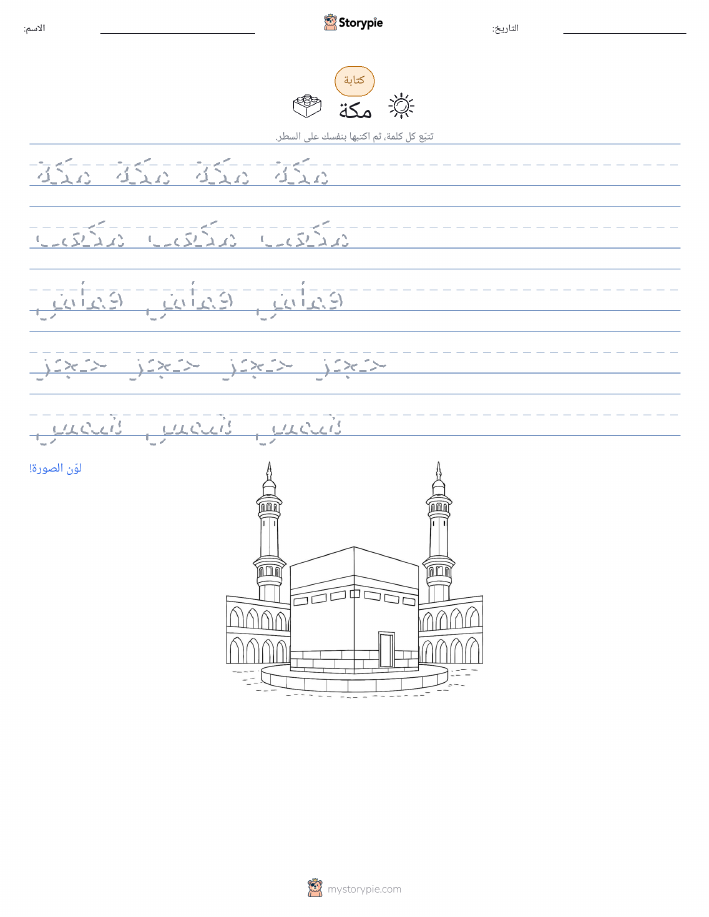 الاسم:
Storypie
التاريخ:
كتابة
مكة
تتبّع كل كلمة، ثم اكتبها بنفسك على السطر.
مكة مكة مكة مكة
مكعب مكعب مكعب
حجر حجر حجر حجر
شمس شمس شمس
لوّن الصورة!
mystorypie.com